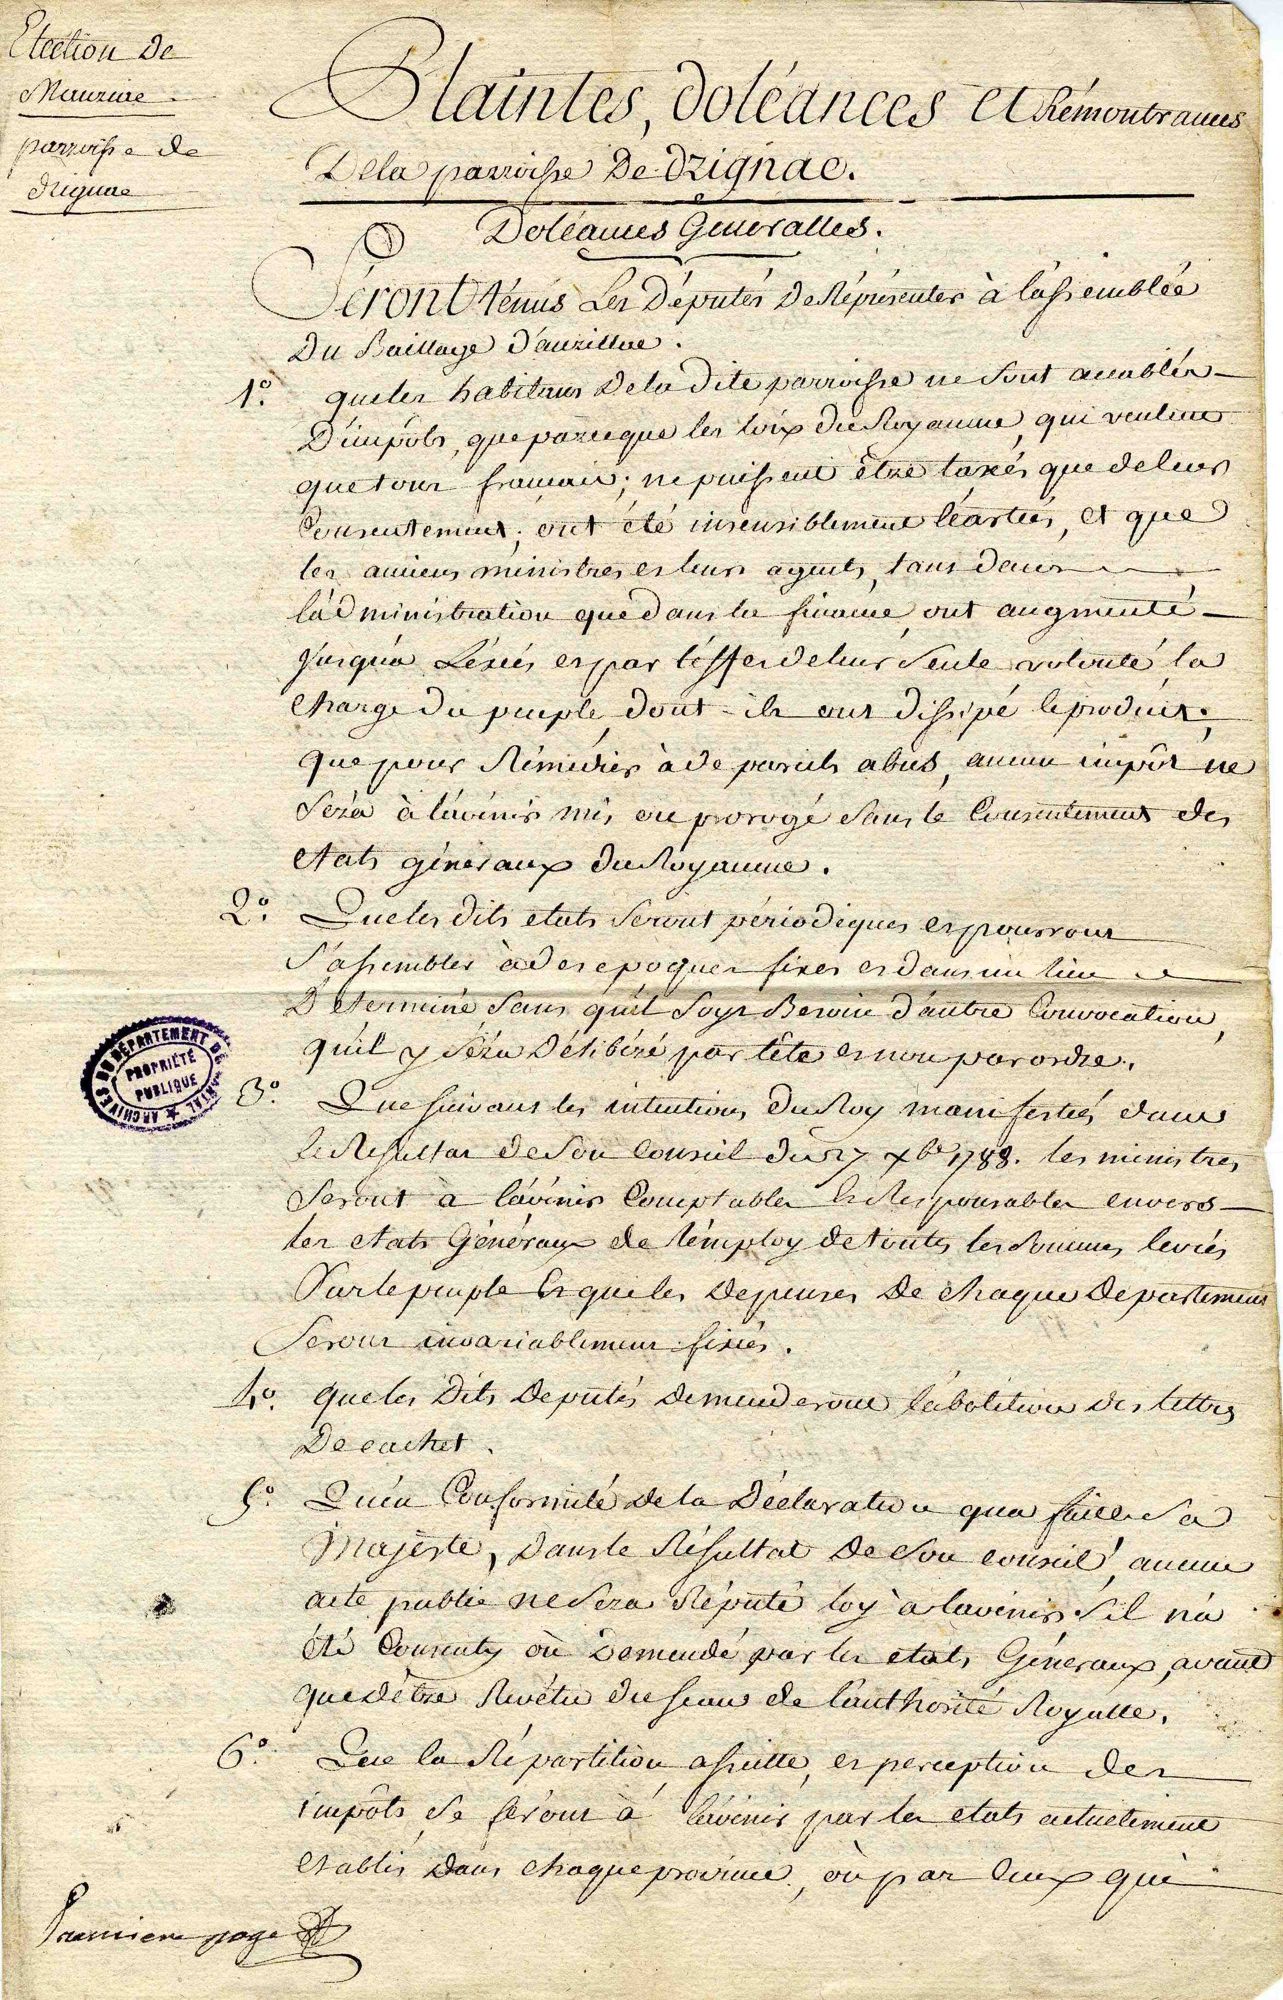 Election de
Mauriac
parroisse de
drignac
Plaintes, doléances et Rémontrances
De la parroisse De drignac.
Doléances Généralles.
Séront ténus Les Députés De Réprésenter à l'assemblée
Du Baillage d'aurillac.
1º. que les habitans De la dite parroisse ne Sont accablés
D'impôts, que parceque les loix du Royaume, qui veulent
que tous français; ne puissent être taxés que de leur
Consentement; ont été insensiblement léartées, et que
les anciens ministres et leurs agents, tant dans
l'administration que dans la finance, ont augmenté
jusqu'a L'éxcés et par l'éffet de leur Seule volonté la
charge Du peuple, dont ils ont dissipé le produit;
que pour Rémédier à de pareils abus, aucun impôt ne
Séra à l'avénir mis ou prorogé Sans le Consentement des
états généraux du Royaume.
2º. Que les dits états Seront périodiques et pourront
S'assembler à des époques fixes et dans un lieu
Déterminé Sans qu'il Soit Besoin d'autre Convocation,
qu'il y Séra Délibéré par tête et non par ordre.
3º. Que Suivant les intentions du Roy manifestées dans
le Résultat de Son Conseil du 27 Xbre 1788. les ministres
Seront à l'avénir Comptables Et Responsables envers
les états Généraux de l'émploy de toutes les Sommes levées
Sur le peuple Et que les Depenses De chaque Departement
Seront invariablement fixées.
4º. que les Dits Deputés Demanderont l'abolition Des lettres
De cachet.
5º. Qu'en Conformité de la Déclaration qu'a faitte Sa
Majesté, Dans le Résultat De Son Conseil, aucun
acte public ne Sera Réputé loy à l'avénir S'il n'a
été Consenty où Demandé par les états Généraux, avant
que d'être Revétu du Sceau de l'authorité Royalle.
6º. Que la Répartition, assiette, et perception des
impôts Se feront à l'avénir par les états actuelement
établis Dans chaque province, où par Ceux qui
Premiere page
ARCHIVES DU DÉPARTEMENT DU CANTAL
PROPRIÉTÉ
PUBLIQUE